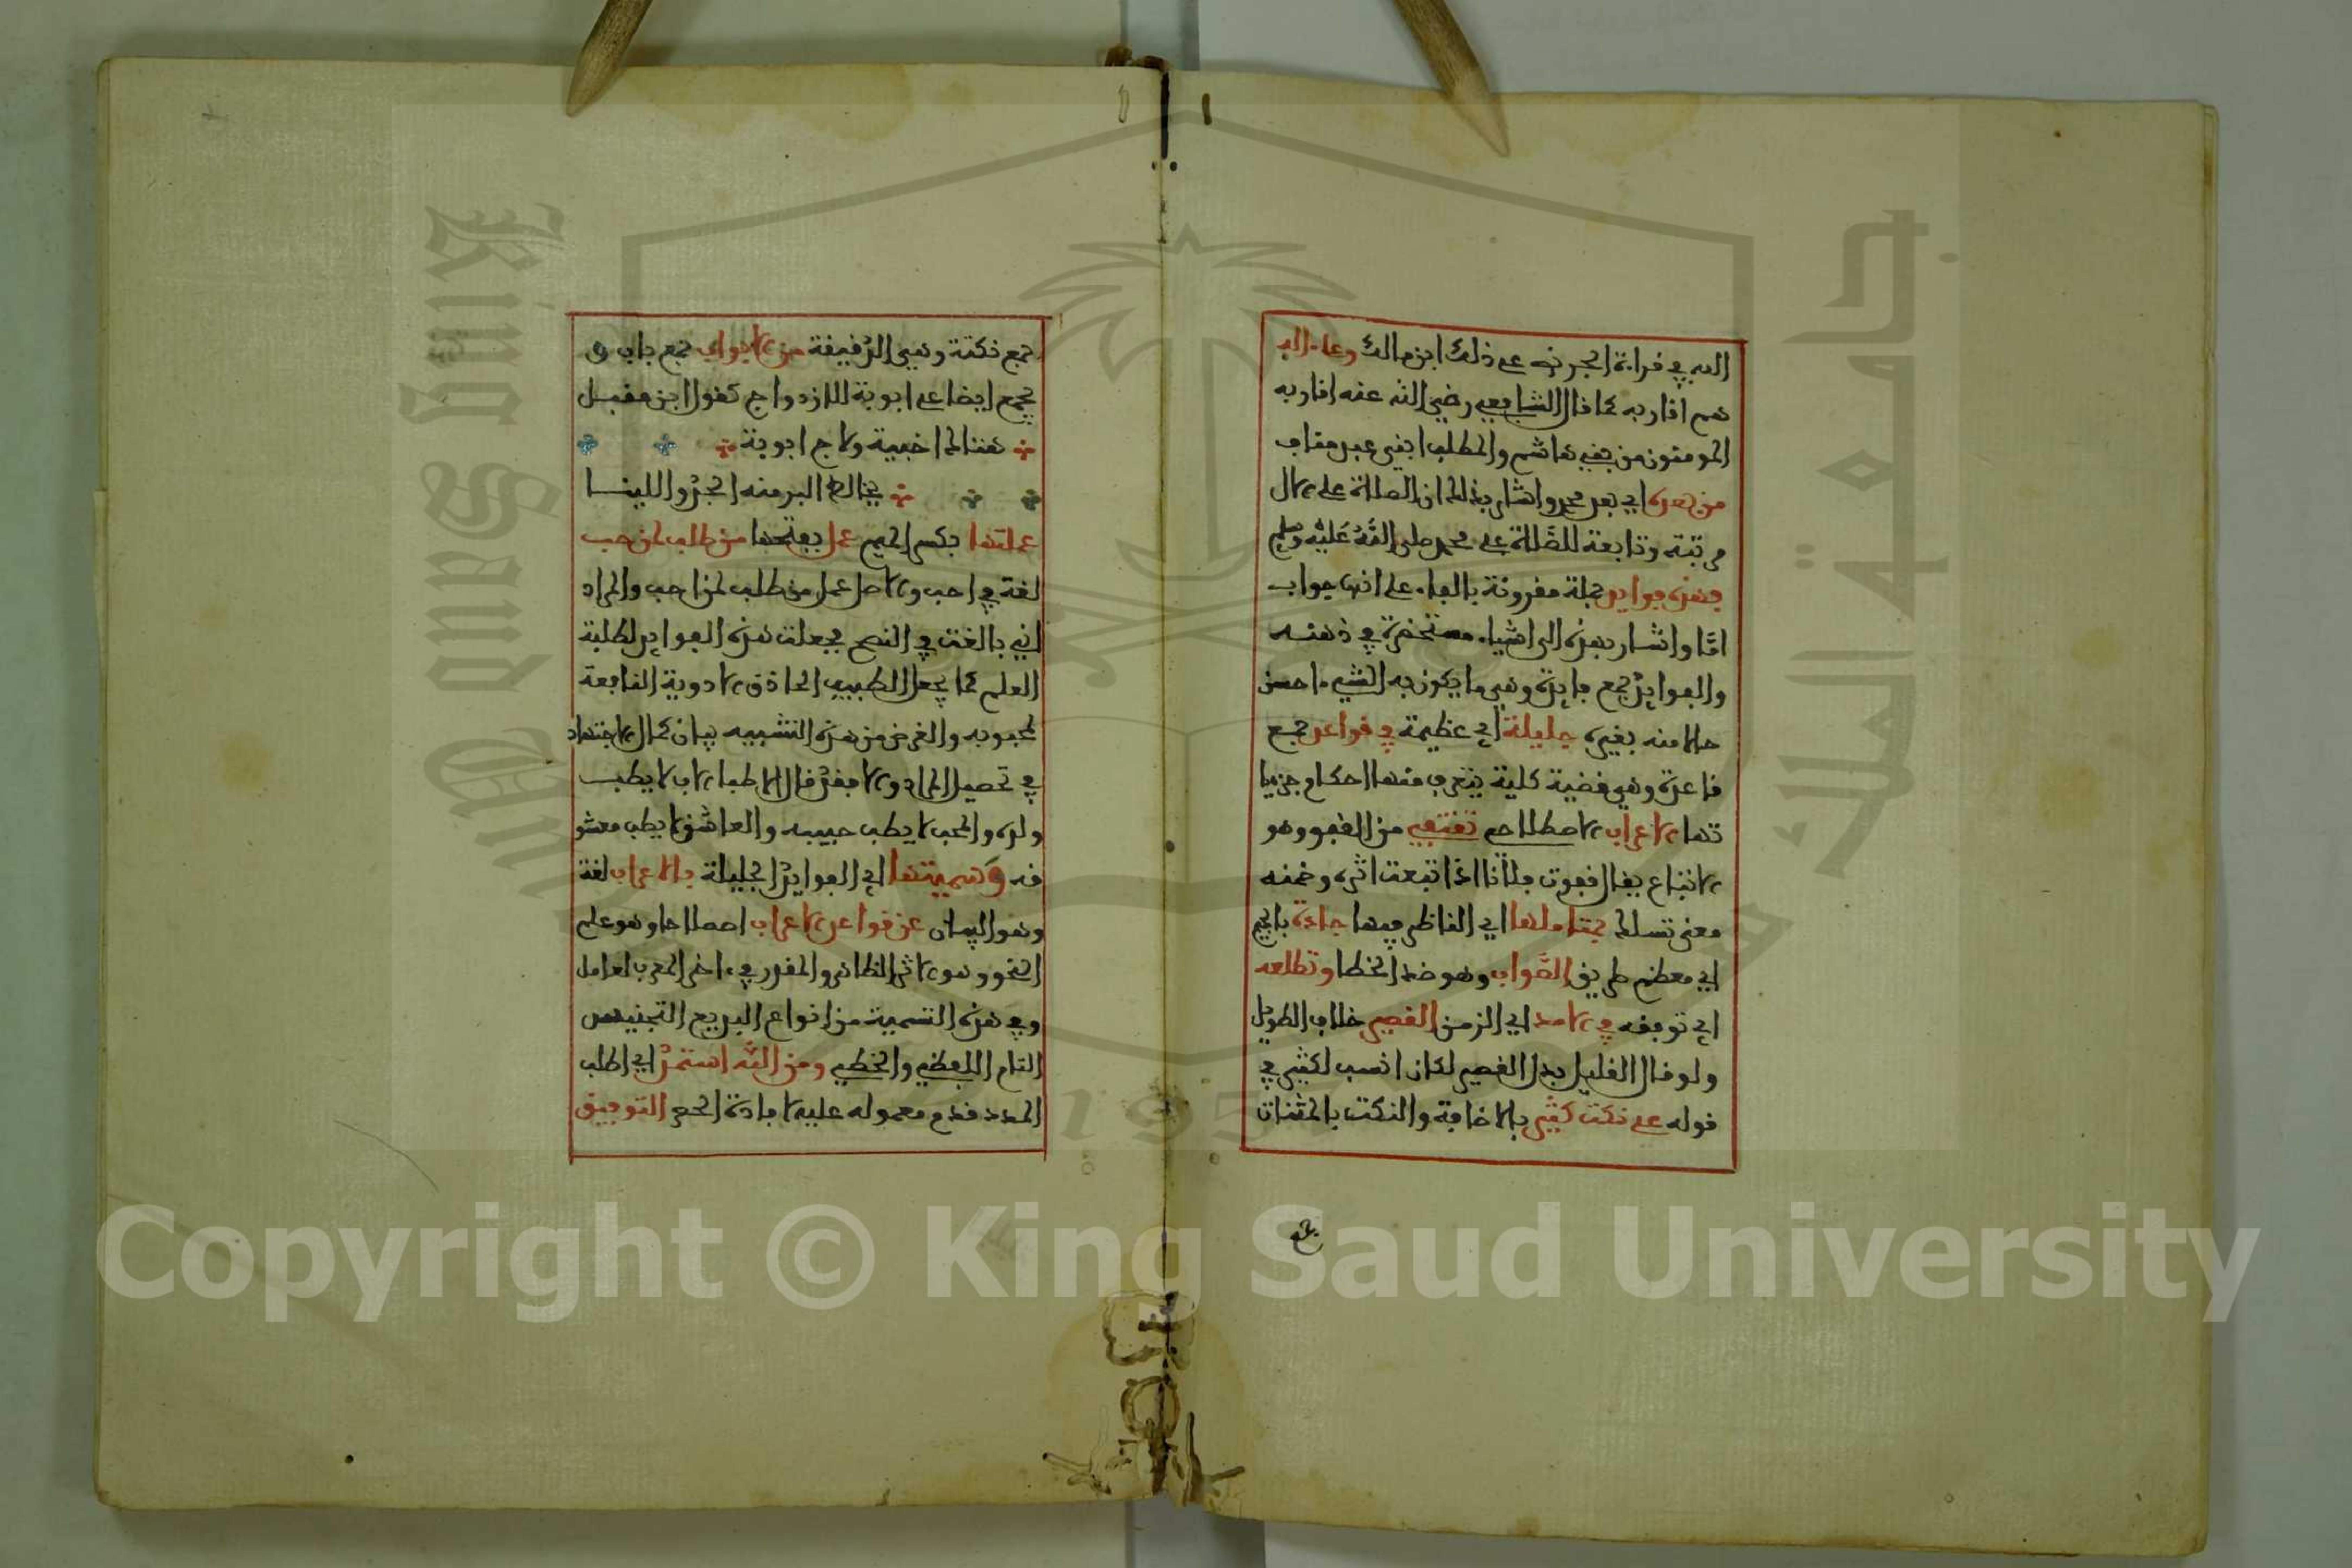 الله في قراءة الجر نص على ذلك ابن مالك وعلى اله
هم اقاربه كما قال الشافعي رضي الله عنه اقاربه
المومنون من بني هاشم والمطلب ابني عبد مناف
من بعده اي بعد محمد واشار بذلك ان الصلاة على الال
مرتبة وتابعة للصَّلاة على محمد صلى اللَّهُ عَلَيْه وسلم
فهذه فوايد جملة مقرونة بالفاء على انها جواب
امَّا واشار بهذه الى اشياء مستحضرة في ذهنه
والفوايد جمع فايدة وهي ما يكون به الشيء احسن
حالا منه بغيره جليلة اي عظيمة في قواعد جمع
قاعدة وهي قضية كلية يتعرف منها احكام جزيا
تها الاعراب الاصطلاحي تقتفي من القفو وهو
الاتباع يقال قفوت فلانا اذا اتبعت اثره وضمنه
معنى تسلك بمتاملها اي الناظر فيها جادة بالجيم
اي معظم طريق الصَّواب وهو ضد الخطا وتطلعه
اي توقفه في الامد اي الزمن القصير خلاف الطويل
ولو قال القليل بدل القصير لكان انسب لكثير في
قوله على نكت كثير بالاضافة والنكت بالمثناة
جمع
جمع نكتة وهي الدقيقة من الابواب جمع باب و
يجمع ايضا على ابوبة للازدواج كقول ابن مقبل
هتاك اخبية ولاج ابوبة
يخالط البر منه الجد واللينا
عملتها بكسر الميم عمل بفتحها من طلب لمن حب
لغة في احب والاصل عمل من طلب لمن احب والمراد
اني بالغت في النصح فجعلت هذه الفوايد لطلبة
العلم كما يجعل الطبيب الحاذق الادوية النافعة
لمحبوبه والغرض من هذه التشبيه بيان كمال الاجتهاد
في تحصيل المراد والا فقد قال الاطباء الاب لا يطب
ولده والمحب لا يطب حبيبه والعاشق لا يطب معشو
قه وَسميتها اي الفوايد الجليلة بالاعراب لغة
وهو البيان عن قواعد الاعراب اصطلاحا وهو علم
النحو وهو الاثر الظاهر والمقدر في ءاخر المعرب لعامل
وفي هذه التسمية من انواع البديع التجنيس
التام اللفظي والخطي ومن اللَّه استمد اي اطلب
المدد قدم معموله عليه لافادة الحصر التوفيق
Copyright © King Saud University
King Saud University
جامعة الملك سعود
1957